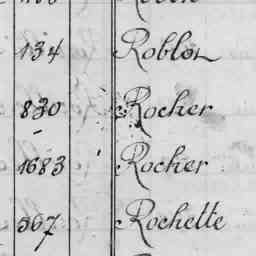 134 Roblot
830 Rocher
1683 Rocher
567 Rochette